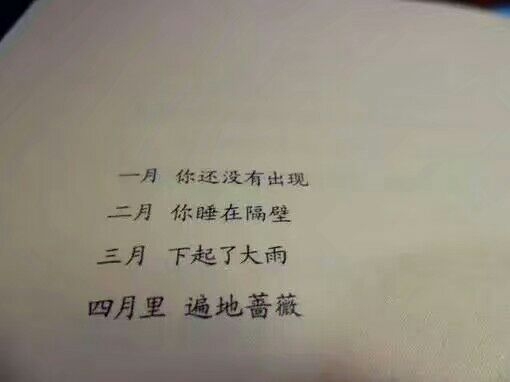 一月 你还没有出现
二月 你睡在隔壁
三月 下起了大雨
四月里 遍地蔷薇